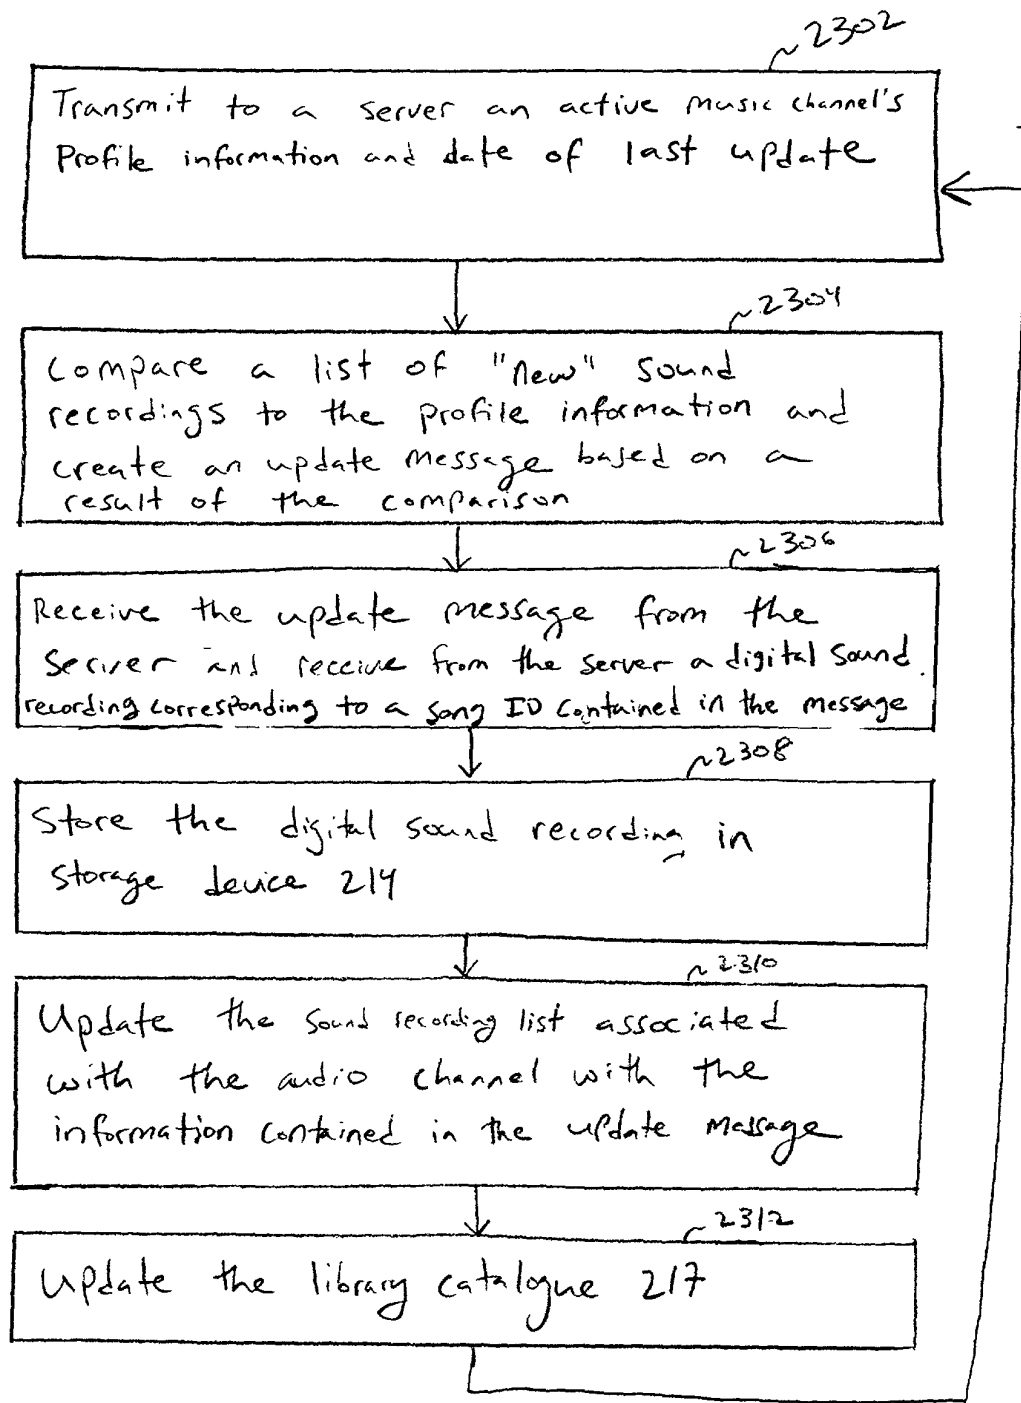 ~2302
Transmit to a server an active music channel's
Profile information and date of last update
~2304
Compare a list of "new" sound
recordings to the profile information and
create an update message based on a
result of the comparison
~2306
Receive the update message from the
Server and receive from the server a digital sound
recording corresponding to a song ID contained in the message
~2308
Store the digital sound recording in
storage device 214
~2310
Update the sound recording list associated
with the audio channel with the
information contained in the update message
~2312
Update the library catalogue 217